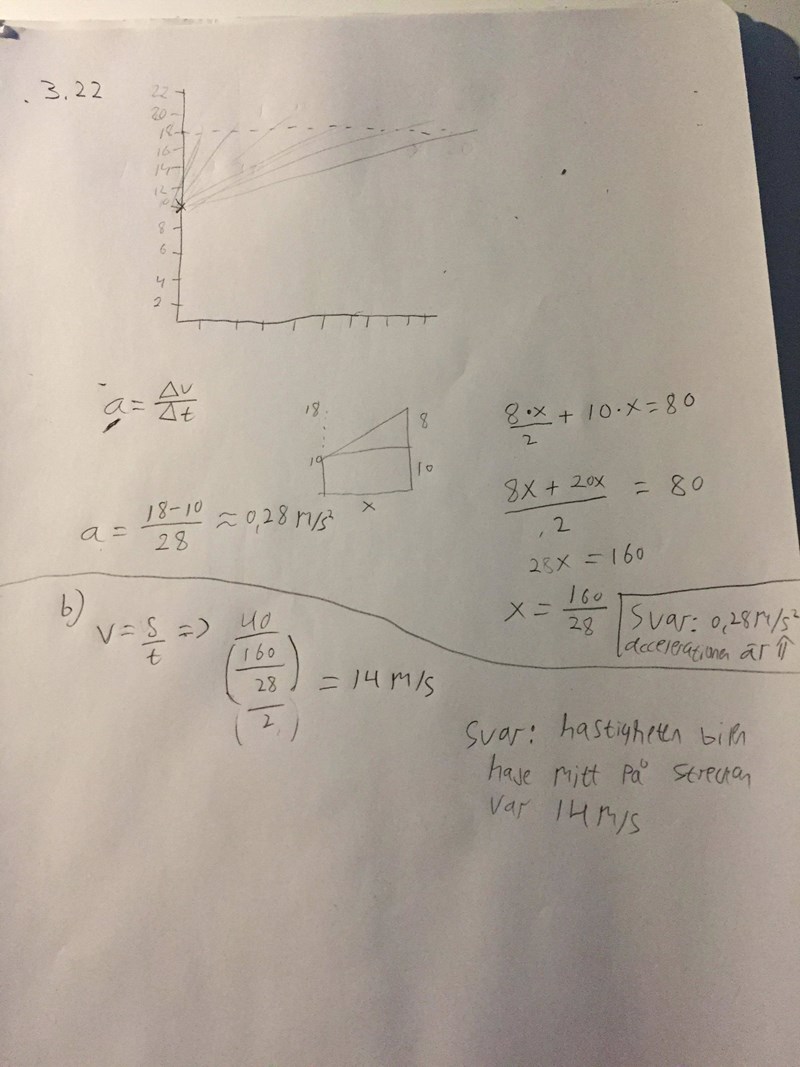 3.22
22
20
18
16
14
12
10
8
6
4
2
a = Δv/Δt
18
10
8
10
x
a = (18-10)/28 ≈ 0,28 m/s²
8·x/2 + 10·x = 80
(8x + 20x)/2 = 80
28x = 160
x = 160/28
Svar: 0,28 m/s²
accelerationen är ⇑
b) v = s/t => 40/((160/28)/2) = 14 m/s
Svar: hastigheten bilen
hade mitt på sträckan
var 14 m/s